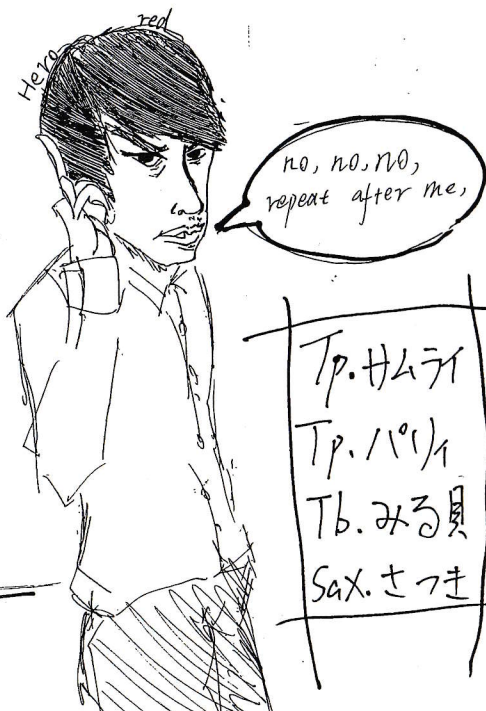 Hero red
no, no, no,
repeat after me,
Tp.サムライ
Tp.パリィ
Tb.みる貝
Sax.さつき